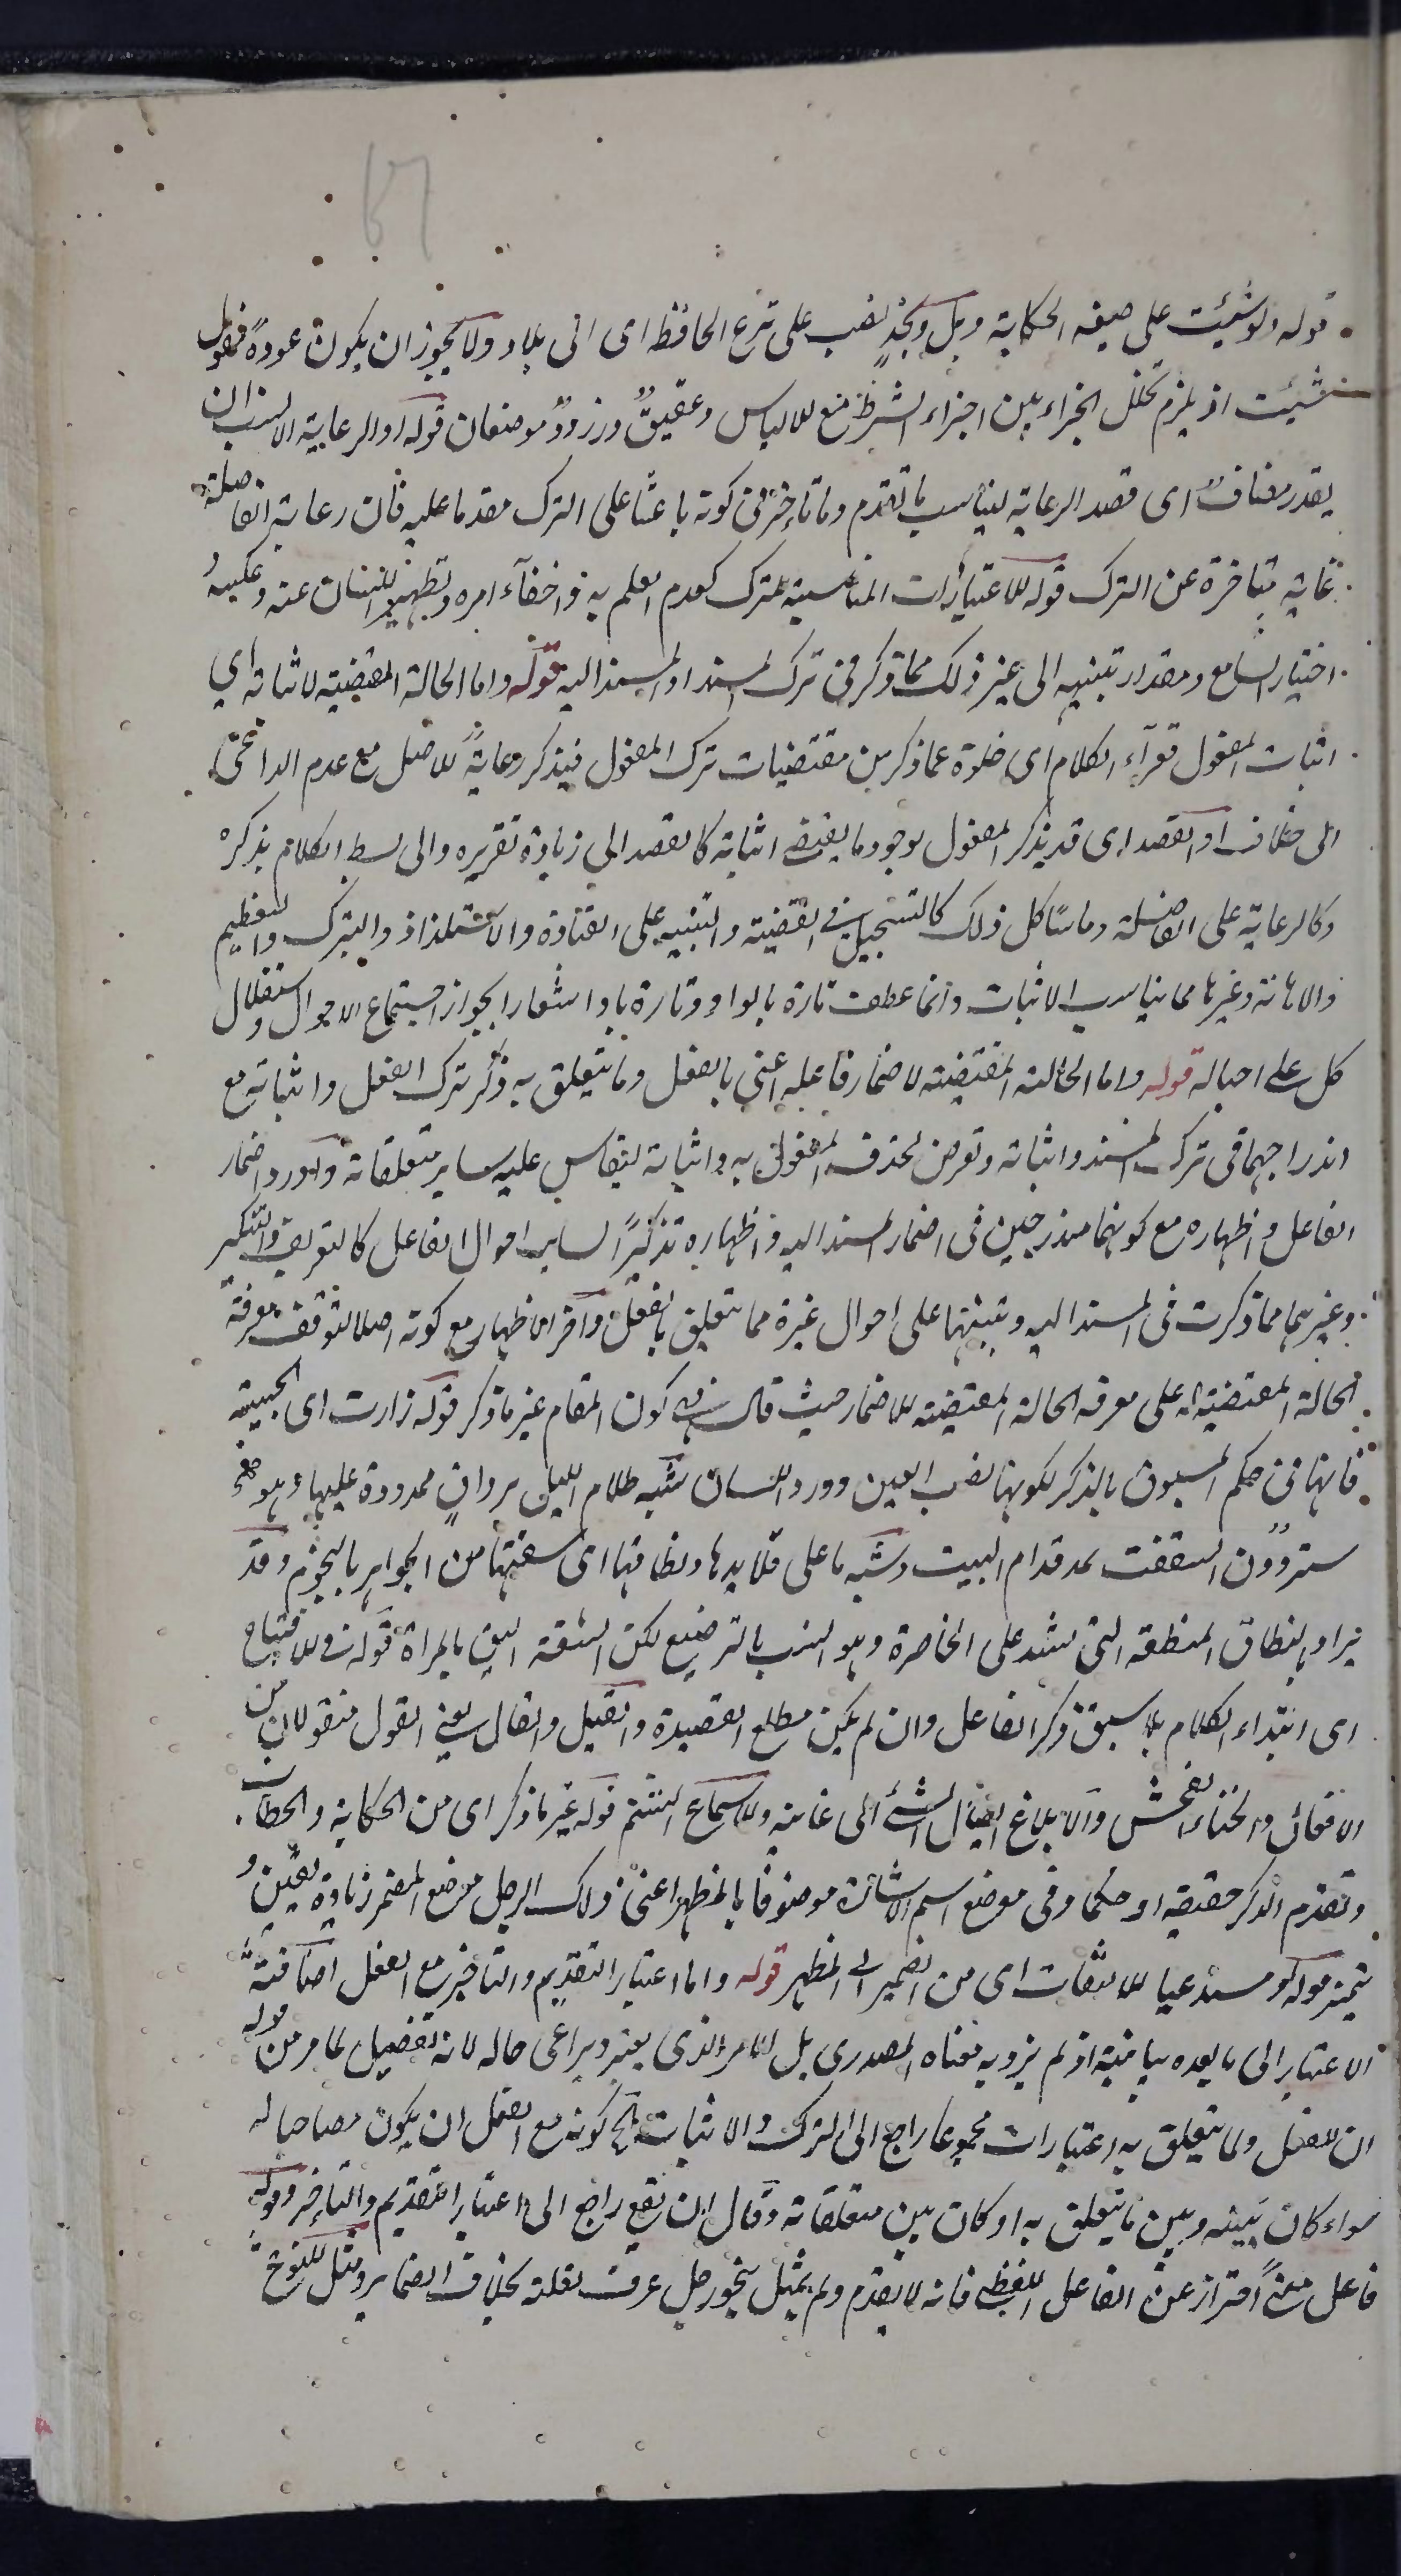 قوله ولو شئت على صيغه الحكاية وبل ونجد نصب على نزع الحافظ اى الى بلاد ولا يجوز ان يكون عودة مفعول
شئت اذ يلزم تخلل الجزاء بين اجزاء الشرط منع للالباس وعقيق وزرود موضعان قوله او الرعاية الانسب ان
يقدر مضاف اى قصد الرعاية ليناسب ما تقدم وما تاخر فى كونه باعثا على الترك مقدما عليه فان رعاية الفاصلة
غاية متاخرة عن الترك قوله للاعتبارات المناسبة للترك كعدم العلم به واخفاء امره وتطهير اللسان عنه وعكسه
اختبار السامع ومقدار تنبهه الى غير ذلك مما ذكر فى ترك المسند او المسند اليه قوله واما الحالة المقتضية لاثباته اي
اثبات المفعول فعراء الكلام اى خلوه عما ذكر من مقتضيات ترك المفعول فيذكر رعاية للاصل مع عدم الداعى
الى خلافه او القصد اى قد يذكر المفعول لوجود ما يقتضى اثباته كالقصد الى زيادة تقريره والى بسط الكلام بذكره
وكالرعاية على الفاصلة وما شاكل ذلك كالتسجيل فى القضية والتنبيه على الغباوة والاستلذاذ والتبرك والتعظيم
والاهانة وغيرها مما يناسب الاثبات وانما عطف تارة بالواو وتارة باو اشعارا بجواز اجتماع الاحوال واستقلال
كل على احياله قوله واما الحالة المقتضية لاضمار فاعله اعنى بالفعل وما يتعلق به ذكر ترك الفعل واثباته مع
اندراجهما فى ترك المسند واثباته وتعرض لحذف المفعول به واثباته ليقاس عليه ساير متعلقاته واورد اضمار
الفاعل واظهاره مع كونهما مندرجين فى اضمار المسند اليه واظهاره تذكيرا لساير احوال الفاعل كالتعريف والتنكير
وغيرهما مما ذكرت فى المسند اليه وتنبيها على احوال غيره مما يتعلق بالفعل واخر الاظهار مع كونه اصلا لتوقف معرفة
الحالة المقتضية له على معرفة الحالة المقتضية للاضمار حيث قال هى كون المقام غير ما ذكر قوله زارت اى الحبيبة
فانها فى حكم المسبوق بالذكر لكونها نصب العين وورد اللسان شبه ظلام الليل برواق ممدودة عليها وهو
ستر دون السقف يمد قدام البيت وشبه ما على قلايدها ونطاقها اى شقتها من الجواهر بالنجوم وقد
يراد بالنطاق المنطقة التى تشد على الخاصرة وهو انسب بالترصيع لكن الشقة اليق بالمراة قوله وللافتتاح
اى ابتداء الكلام بلا سبق ذكر الفاعل وان لم يكن مطلع القصيدة والقيل والقال يعنى القول منقولان من
الافعال والخناء الفحش والابلاغ ايصال الشئ الى غاية وللاسماع الشتم قوله غير ما ذكر اى من الحكاية والخطاب
وتقدم الذكر حقيقة او حكما وفى موضع اسم الاشارة موصوفا بالمظهر اعنى ذلك الرجل موضع المضمر زيادة تعيين و
تميز قوله مستدعيا للالتفات اى من الضمير الى المظهر قوله واما اعتبار التقديم والتاخير مع الفعل اضافة
الاعتبار الى ما بعده بيانية اذ لم يرد به معناه المصدرى بل الامر الذى يعتبر ويراعى حاله لانه تفصيل لما مر من قوله
ان للفعل ولما يتعلق به اعتبارات مجموعها راجع الى الترك والاثبات الخ كونه مع الفعل ان يكون مصاحبا له
سواء كان بينه وبين ما يتعلق به او كان بين متعلقاته وقال ان يقع راجع الى اعتبار التقديم والتاخير وقوله
فاعل معنى احتراز عن الفاعل اللفظى فانه لا يقدم ولم يمثل بنحو رجل عرف لقلته بخلاف الضماير ومثل للنوع